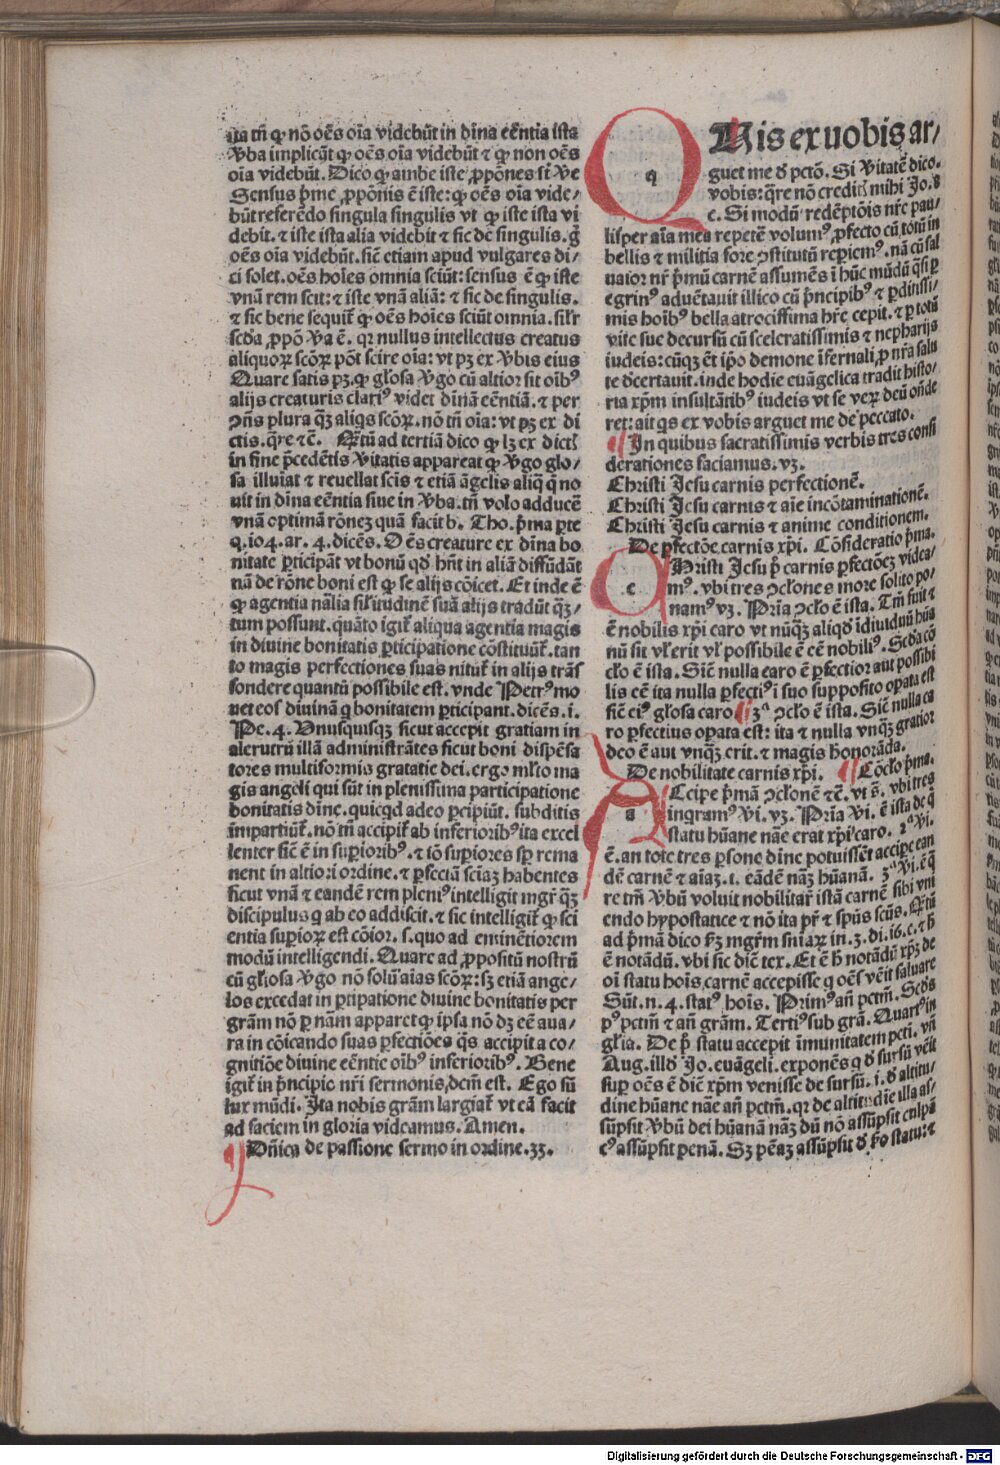 ua tñ qɜ nō oēs oīa videbūt in dīna eēntia ista
v̄ba implicāt qɜ oēs oīa videbūt ⁊ qɜ non oēs
oīa videbūt. Dico qɜ ambe iste ꝓpōnes sūt ve
Sensus p̄me ꝓpōnis ē iste: qɜ oēs oīa vide⸗
būt referēdo singula singulis vt qɜ iste ista vi
debit. ⁊ iste ista alia videbit ⁊ sic de singulis. g̊
oēs oīa videbūt. sic̄ etiam apud vulgares di⸗
ci solet. oēs hoīes omnia sciūt: sensus ē qɜ iste
vnā rem scit: ⁊ iste vnā aliā: ⁊ sic de singulis.
⁊ sic bene sequit̄ qɜ oēs hoīes sciūt omnia. silr̄
scd̄a ꝓpō va ē. qꝛ nullus intellectus creatus
aliquoꝝ scōꝝ pōt scire oīa: vt pꝫ ex v̄bis eius
Quare satis pꝫ. qɜ gl̄osa v̄go cū altior sit oībꝰ
alijs creaturis clariꝰ videt dīnā eēntiā. ⁊ per
ↄn̄s plura qꝫ aliqs scōꝝ. nō tn̄ oīa: vt pꝫ ex di
ctis. qr̄e ⁊c̄. Qr̄tū ad tertiā dico qɜ lꝫ ex dict̄
in fine p̄cedētis v̄itatis appareat qɜ v̄go glo⸗
sa illuīat ⁊ reuellat scīs ⁊ etiā āgelis aliq̄ q̄ no
uit in dīna eēntia siue in v̄ba. tn̄ volo adducē
vnā optimā rōneꝫ quā facit b. Tho. p̄ma ꝑte
q. 104. ar. 4. dicēs. Oēs creature ex dīna bo
nitate ꝑticipāt vt bonū qd̄ hn̄t in aliā diffūdāt
nā de rōne boni est qɜ se alijs cōicet. Et inde ē
qɜ agentia nālia sil̄itudinē suā alijs tradūt qꝫ⸗
tum possunt. quāto igit̄ aliqua agentia magis
in diuine bonitatis ꝑticipatione cōstituūt̄. tan
to magis perfectiones suas nitūt̄ in alijs trās
fondere quantū possibile est. vnde Petrꝰ mo
uet eos diuinā q bonitatem ꝑticipant. dicēs. i.
Pe. 4. Vnusquisqꝫ sicut accepit gratiam in
alerutrū illā administrātes sicut boni dispēsa
tores multiformis gratatie dei. ergo ml̄to ma
gis angeli qui sūt in plenissima participatione
bonitatis dīne. quicqd adeo ꝑcipiūt. subditis
impartiūt̄. nō tn̄ accipit̄ ab inferioribꝰ ita excel
lenter sic̄ ē in suꝑioribꝰ. ⁊ iō suꝑiores sꝑ rema
nent in altiori ordine. ⁊ ꝑfectā sciaꝫ habentes
sicut vnā ⁊ eandē rem pleniꝰ intelligit mgr̄ qꝫ
discipulus q ab eo addiscit. ⁊ sic intelligit̄ qɜ sci
entia suꝑioꝝ est cōior. s. quo ad eminētiorem
modū intelligendi. Quare ad ꝓpositū nostrū
cū gl̄iosa v̄go nō solū aīas scōꝝ: sꝫ etiā ange⸗
los excedat in ꝑtipatione diuine bonitatis per
grām nō ꝑ nām apparet qɜ ipsa nō dꝫ eē aua⸗
ra in cōicando suas ꝑfectiōes qs accipit a co⸗
gnitiōe diuine eēntie oībꝰ inferioribꝰ. Bene
igit̄ in p̄ncipio nr̄i sermonis, dcm̄ est. Ego sū
lux mūdi. Ita nobis grām largiat̄ vt eā facie
ad faciem in gloria videamus. Amen.
Dn̄ica de passione sermo in ordine. 33.
Quis ex uobis ar⸗
guet me d̄ pctō. Si v̄itatē dico.
vobis: qr̄e nō creditis mihi Jo. 8
c. Si modū redēptōis nr̄e pau⸗
lisper aīa mea repetē volumꝰ, ꝓfecto cū totū in
bellis ⁊ militia fore ↄstitutū reꝑiemꝰ. nā cū sal
uator nr̄ p̄mū carnē assumēs ī hūc mūdū qsi ꝑ
egrinꝰ aduētauit illico cū p̄ncipibꝰ ⁊ ꝑdissi⸗
mis hoībꝰ bella atrocissima hr̄e cepit. ⁊ ꝑ totū
vite sue decursū cū sceleratissimis ⁊ nepharijs
iudeis: cūqꝫ ēt ip̄o demone īfernali, ꝓ nr̄a salu
te decertauit. inde hodie euāgelica tradit histo⸗
ria xp̄m insultātibꝰ iudeis vt se veꝝ deū oñde
ret: ait qs ex vobis arguet me de peccato.
In quibus sacratissimis verbis tres consi
derationes faciamus. vꝫ.
Christi Jesu carnis perfectionē.
Christi Jesu carnis ⁊ aīe incōtaminationē.
Christi Jesu carnis ⁊ anime conditionem.
De ꝑfectōe carnis xp̄i. Cōsideratio p̄ma.
Christi Jesu p̄ carnis ꝑfectōeꝫ videa⸗
mꝰ. vbi tres ↄcl̄ones more solito po⸗
namꝰ vꝫ. Pr̄ia ↄcl̄o ē ista. Tm̄ fuit ⁊
ē nobilis xp̄i caro vt nūqꝫ aliqd̄ īdiuiduū hūa
nū sit vl̄ erit vl̄ possibile ē eē nobiliꝰ. Scd̄a cō
cl̄o ē ista. Sic̄ nulla caro ē ꝑfectior aut possibi
lis eē ita nulla ꝑfectiꝰ i suo supposito oꝑata est
sic̄ eiꝰ gl̄osa caro 3ª ↄcl̄o ē ista. Sic̄ nulla ca
ro ꝑfectius oꝑata est: ita ⁊ nulla vnqꝫ gratior
deo ē aut vnqꝫ erit. ⁊ magis honorāda.
De nobilitate carnis xp̄i. Cōcl̄o p̄ma.
Accipe p̄mā ↄcl̄onē ⁊c̄. vt s̄. vbi tres
ingramꝰ v̄i. vꝫ. Pr̄ia v̄i. ē ista de q̄
statu hūane nāe erat xp̄i caro. 2ª v̄i.
ē. an tote tres ꝑsone dīne potuissēt accipe ean
dē carnē ⁊ aīaꝫ. i. eādē nāꝫ hūanā. 3ª v̄i. ē q̄
re tm̄ v̄bū voluit nobilitar̄ istā carnē sibi vni
endo hypostatice ⁊ nō ita pr̄ ⁊ spūs scūs. Qr̄tū
ad p̄mā dico ẜꝫ mgr̄m sn̄iaꝝ in. 3. di. 16. c. ⁊ h̄
ē notādū. vbi sic diē tex. Et ē h̄ notādū xp̄ꝫ de
oī statu hoīs, carnē accepisse q oēs vēit saluare
Sūt. n. 4. statꝰ hoīs. Primꝰ añ pctm̄. Scd̄s
pꝰ pctm̄ ⁊ añ grām. Tertiꝰ sub grā. Quartꝰ in
gl̄ia. De p̄ statu accepit īmunitatem pcti. vn̄
Aug. illd̄ Jo. euāgeli. exponēs q d̄ sursū vēit
suꝑ oēs ē diē xp̄m venisse de sursū. i. d̄ altitu⸗
dine hūane nāe añ pctm̄. qꝛ de altitudie illa as⸗
sūpsit v̄bū dei hūanā nāꝫ dū nō assūpsit culpā
cꝰ assūpsit penā. Sꝫ penā assūpsit d̄ scd̄o statu: ⁊
Digitalisierung gefördert durch die Deutsche Forschungsgemeinschaft - DFG